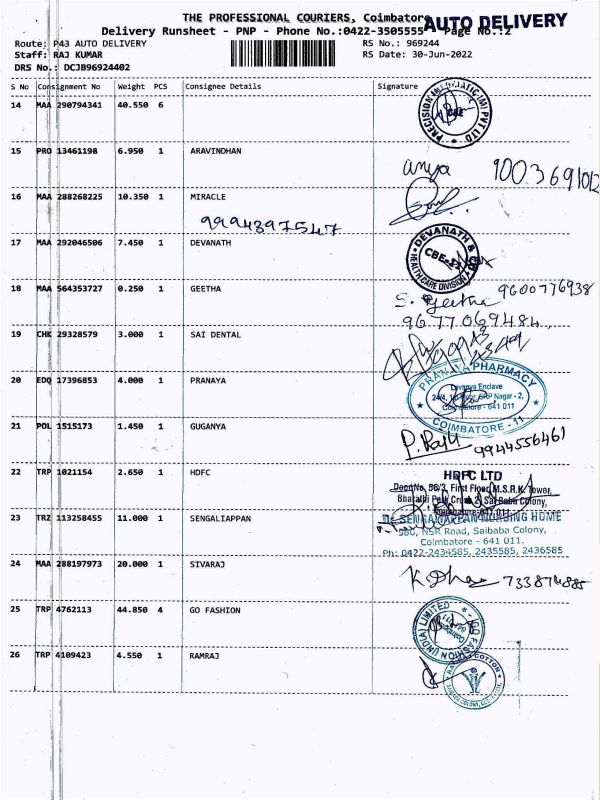 THE PROFESSIONAL COURIERS, Coimbatore
AUTO DELIVERY
Delivery Runsheet - PNP - Phone No.:0422-3505555 Page No.:2
Route: P43 AUTO DELIVERY RS No.: 969244
Staff: RAJ KUMAR RS Date: 30-Jun-2022
DRS No.: DCJB96924402
S No Consignment No Weight PCS Consignee Details Signature
14 MAA 290794341 40.550 6
PRECISION (M) PVT LTD
15 PRO 13461198 6.950 1 ARAVINDHAN
16 MAA 288268225 10.350 1 MIRACLE
9994397547
17 MAA 292046506 7.450 1 DEVANATH
DEVANATH & CO
HEALTH CARE DIVISION
18 MAA 564353727 0.250 1 GEETHA
S. Geetha 9600776938
9677069484
19 CHK 29328579 3.000 1 SAI DENTAL
20 EDQ 17396853 4.000 1 PRANAYA
PRANAYA PHARMACY
Lavanya Enclave
COIMBATORE - 11
21 POL 1515173 1.450 1 GUGANYA
P. Raju 9944556461
22 TRP 1021154 2.650 1 HDFC
HDFC LTD
Door No. 56/3, First Floor, M.S.R.K. Tower,
23 TRZ 113258455 11.000 1 SENGALIAPPAN
NURSING HOME
580, NSR Road, Saibaba Colony,
Coimbatore - 641 011.
Ph: 0422-2434585, 2435585, 2436585
24 MAA 288197973 20.000 1 SIVARAJ
25 TRP 4762113 44.850 4 GO FASHION
GO FASHION (INDIA) LIMITED
26 TRP 4109423 4.550 1 RAMRAJ
COTTON